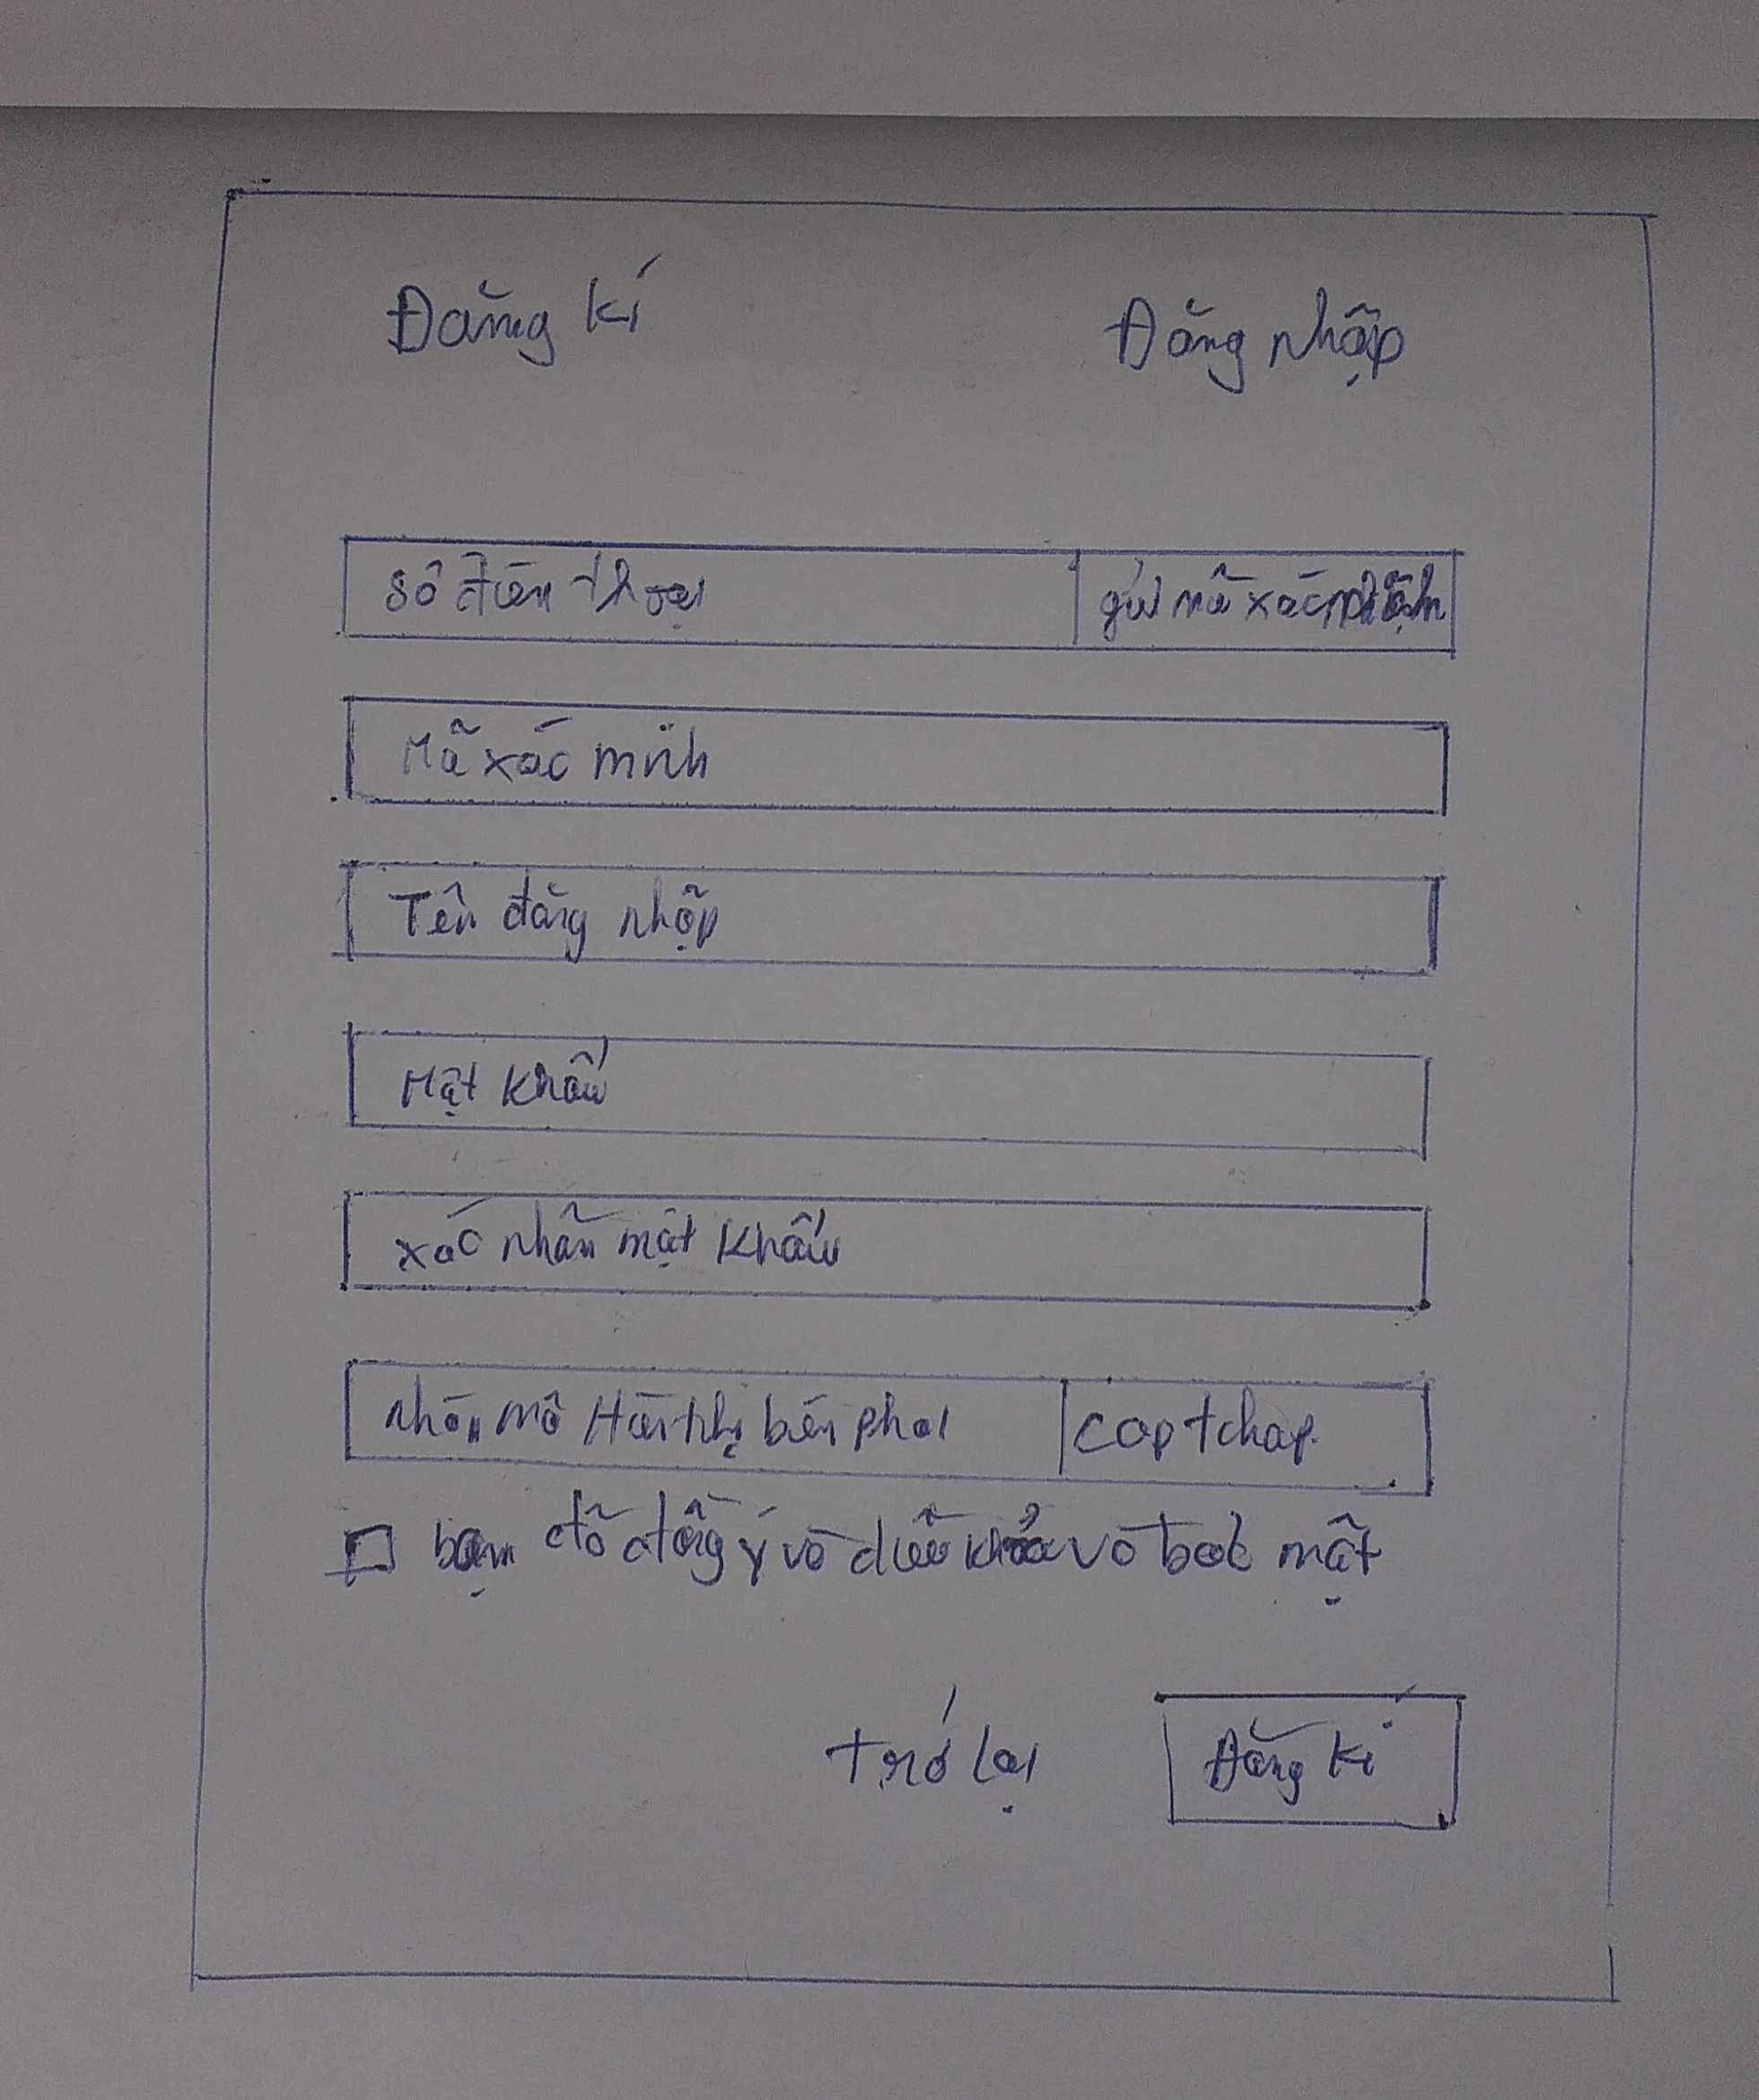 Đăng kí
Đăng nhập
Số điện thoại
gửi mã xác nhận
Mã xác minh
Tên đăng nhập
Mật khẩu
xác nhận mật khẩu
nhập mã Hiển thị bên phải
captchap
bạn đã đồng ý về điều khoản và bảo mật
trở lại
Đăng kí